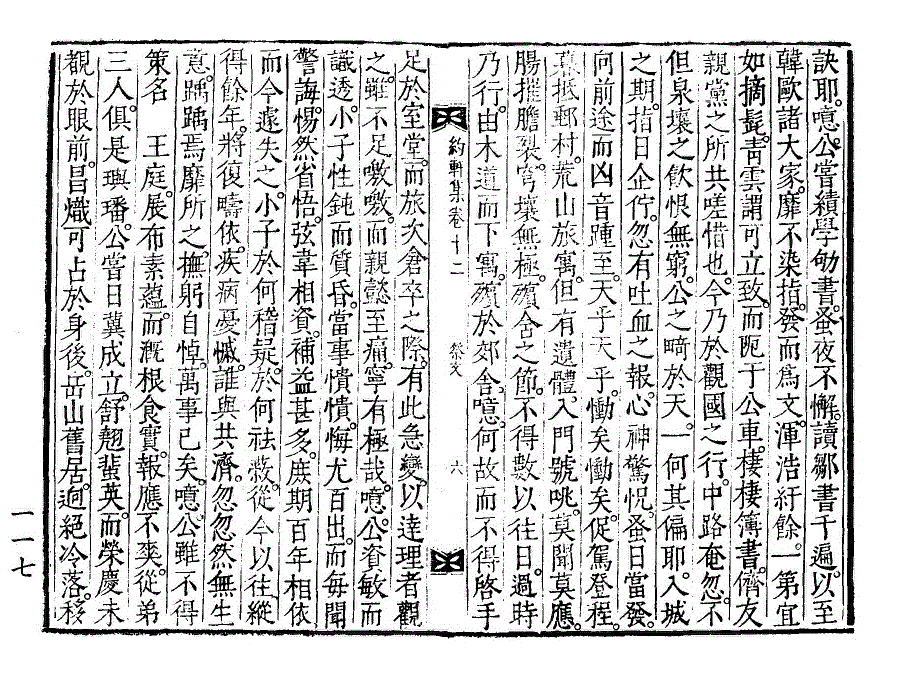 訣耶。噫。公嘗績學劬書。蚤夜不懈。讀鄒書千遍。以至
韓歐諸大家。靡不染指。發而爲文。渾浩紆餘。一第宜
如摘髭。靑雲謂可立致。而阨于公車。棲棲簿書。儕友
親黨之所共嗟惜也。今乃於觀國之行。中路奄忽。不
但泉壤之飮恨無窮。公之畸於天。一何其偏耶。入城
之期。指日企佇。忽有吐血之報。心神驚怳。蚤日當發。
向前途而凶音踵至。天乎天乎。慟矣慟矣。促駕登程。
暮抵郵村。荒山旅寓。但有遺體。入門號咷。莫聞莫應。
腸摧膽裂。穹壤無極。殯舍之節。不得數以往日。過時
乃行。由木道而下寓。殯於郊舍。噫。何故而不得啓手
約軒集卷十二　祭文　六
足於室堂。而旅次倉卒之際。有此急變。以達理者觀
之。雖不足噭噭。而親懿至痛。寧有極哉。噫。公資敏而
識透。小子性鈍而質昏。當事憒憒。悔尤百出。而每聞
警誨。惕然省悟。弦韋相資。補益甚多。庶期百年相依
而今遽失之。小子於何稽疑。於何祛蔽。從今以往。縱
得餘年。將復疇依。疾病憂慽。誰與共濟。忽忽然無生
意。踽踽焉靡所之。撫躬自悼。萬事已矣。噫。公雖不得
策名　王庭。展布素蘊。而漑根食實。報應不爽。從弟
三人。俱是璵璠。公嘗日冀成立。舒翹蜚英。而榮慶未
覩於眼前。昌熾可占於身後。岳山舊居。逈絶冷落。移
一一七